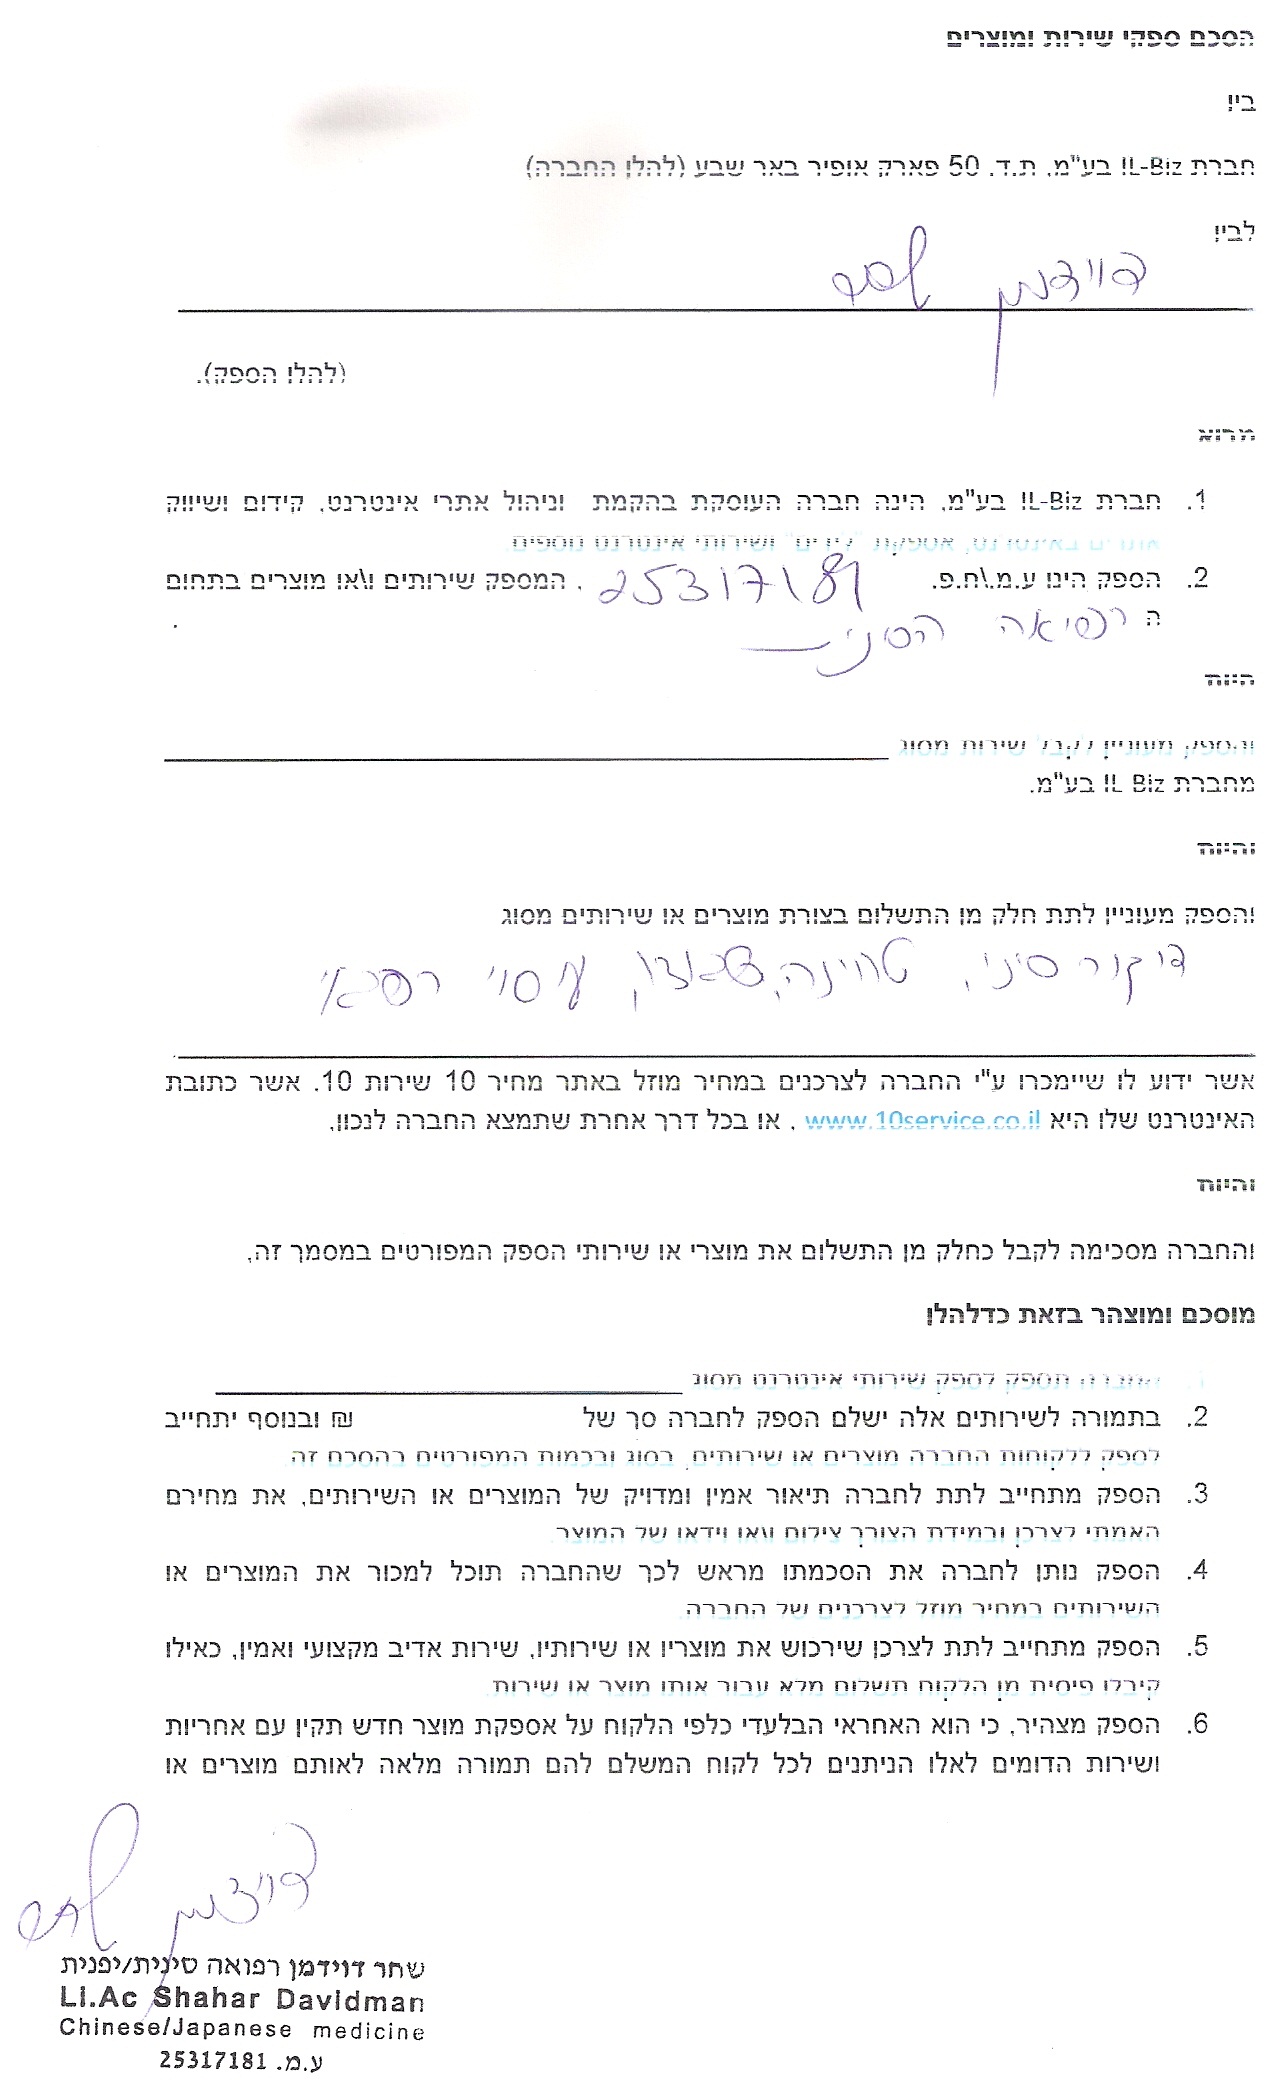 הסכם ספקי שירות ומוצרים
בין
חברת IL-Biz בע"מ, ת.ד. 50 פארק אופיר באר שבע (להלן החברה)
לבין
דוידמן שחר
(להלן הספק).
מבוא
1. חברת IL-Biz בע"מ, הינה חברה העוסקת בהקמת וניהול אתרי אינטרנט, קידום ושיווק
אספקת "לידים" ושירותי אינטרנט נוספים.
2. הספק הינו ע.מ.\ח.פ. 25317181, המספק שירותים ו\או מוצרים בתחום
ה רפואה הסינית.
היות
והספק מעוניין לקבל שירות מסוג
מחברת IL Biz בע"מ.
והיות
והספק מעוניין לתת חלק מן התשלום בצורת מוצרים או שירותים מסוג
דיקור סיני, טווינה, שיאצו, עיסוי רפואי
אשר ידוע לו שיימכרו ע"י החברה לצרכנים במחיר מוזל באתר מחיר 10 שירות 10. אשר כתובת
האינטרנט שלו היא www.10service.co.il , או בכל דרך אחרת שתמצא החברה לנכון,
והיות
והחברה מסכימה לקבל כחלק מן התשלום את מוצרי או שירותי הספק המפורטים במסמך זה,
מוסכם ומוצהר בזאת כדלהלן
1. החברה תספק לספק שירותי אינטרנט מסוג
2. בתמורה לשירותים אלה ישלם הספק לחברה סך של ₪ ובנוסף יתחייב
לספק ללקוחות החברה מוצרים או שירותים, בסוג ובכמות המפורטים בהסכם זה.
3. הספק מתחייב לתת לחברה תיאור אמין ומדויק של המוצרים או השירותים, את מחירם
האמתי לצרכן ובמידת הצורך צילום ו\או וידאו של המוצר.
4. הספק נותן לחברה את הסכמתו מראש לכך שהחברה תוכל למכור את המוצרים או
השירותים במחיר מוזל לצרכנים של החברה.
5. הספק מתחייב לתת לצרכן שירכוש את מוצריו או שירותיו, שירות אדיב מקצועי ואמין, כאילו
קיבלו פיסית מן הלקוח תשלום מלא עבור אותו מוצר או שירות.
6. הספק מצהיר, כי הוא האחראי הבלעדי כלפי הלקוח על אספקת מוצר חדש תקין עם אחריות
ושירות הדומים לאלו הניתנים לכל לקוח המשלם להם תמורה מלאה לאותם מוצרים או
דוידמן שחר
שחר דוידמן רפואה סינית/יפנית
Li.Ac Shahar Davidman
Chinese/Japanese medicine
ע.מ. 25317181